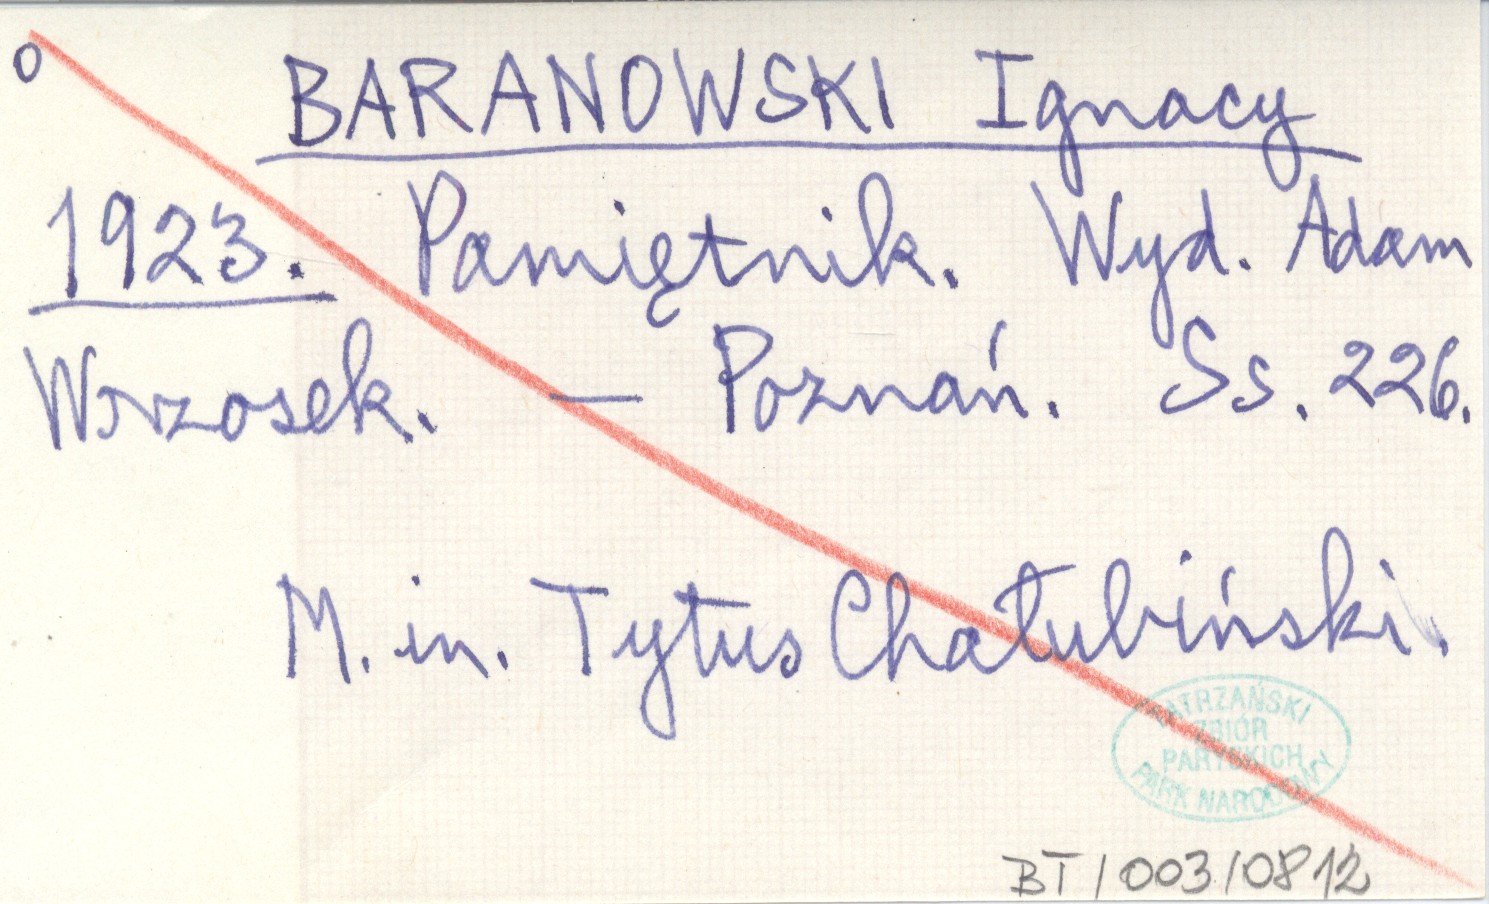 o
BARANOWSKI Ignacy
1923. Pamiętnik. Wyd. Adam
Wrzosek. — Poznań. Ss. 226.
M. in. Tytus Chałubiński.
TATRZAŃSKI
ZBIÓR
PARYSKICH
PARK NARODOWY
BT/003/0812